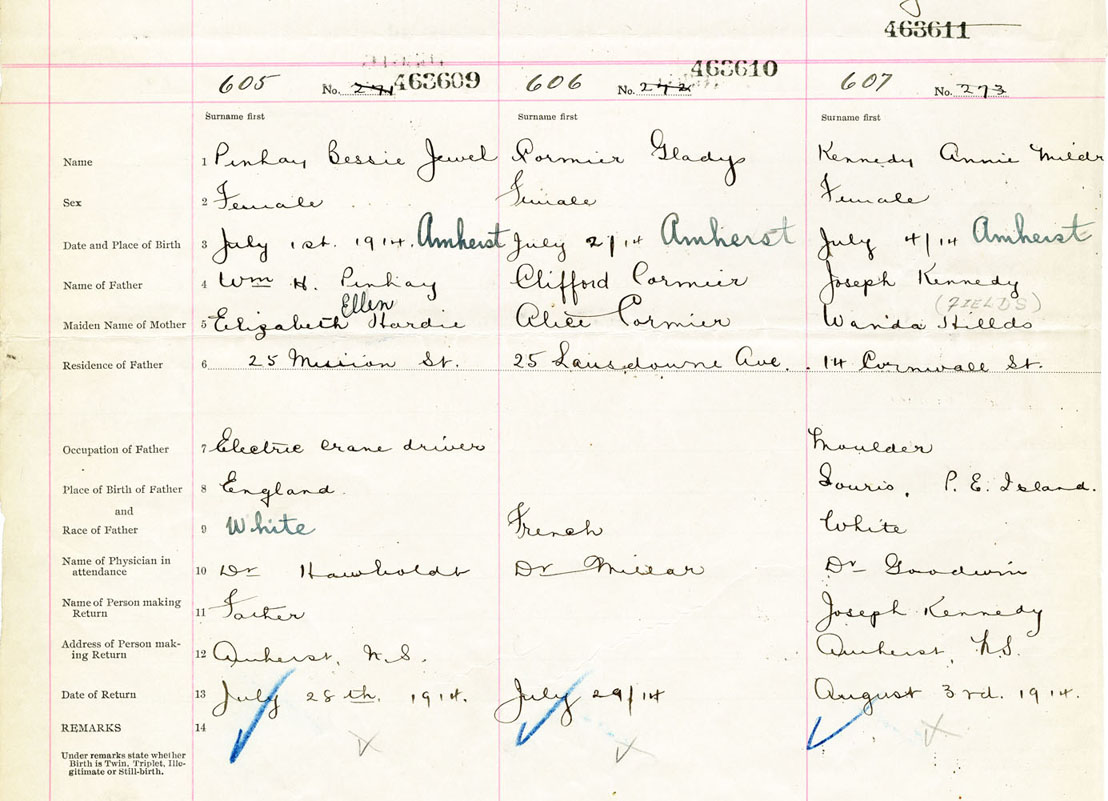 463611
605 No. 271 463609 606 No. 272 463610 607 No. 273
Surname first Surname first Surname first
Name 1 Pinhay Bessie Jewel Cormier Gladys Kennedy Annie Mildr
Sex 2 Female Female Female
Date and Place of Birth 3 July 1st. 1914. Amherst July 2/14 Amherst July 4/14 Amherst
Name of Father 4 Wm H. Pinhay Clifford Cormier Joseph Kennedy
Ellen (FIELDS)
Maiden Name of Mother 5 Elizabeth Hardie Alice Cormier Wanda Hillds
Residence of Father 6 25 Mission St. 25 Lansdowne Ave. 14 Cornwall St.
Occupation of Father 7 Electric crane driver Moulder
Place of Birth of Father 8 England. Souris, P. E. Island.
and
Race of Father 9 White French White
Name of Physician in
attendance 10 Dr Dr Millar Dr Goodwin
Name of Person making
Return 11 Father Joseph Kennedy
Address of Person mak-
ing Return 12 Amherst, N.S. Amherst, N.S.
Date of Return 13 July 28th. 1914. July 29/14 August 3rd. 1914.
REMARKS 14
Under remarks state whether
Birth is Twin, Triplet, Ille-
gitimate or Still-birth.